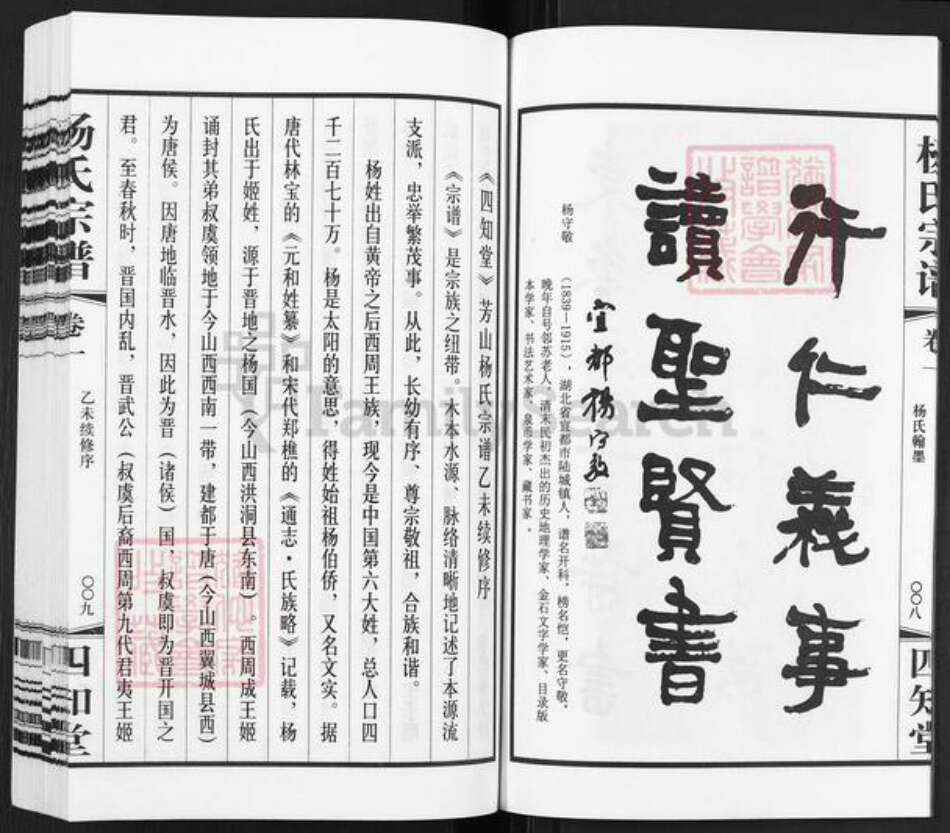 杨氏宗谱
卷一
杨氏翰墨
〇〇八
四知堂
行仁義事
讀聖賢書
宜都楊守敬
杨守敬
(1839—1915),湖北省宜都市陆城镇人,谱名开科,榜名恺,更名守敬,
晚年自号邻苏老人。清末民初杰出的历史地理学家、金石文字学家、目录版
本学家、书法艺术家、泉币学家、藏书家。
《四知堂》芳山杨氏宗谱乙未续修序
《宗谱》是宗族之纽带。木本水源、脉络清晰地记述了本源流
支派,忠举繁茂事。从此,长幼有序、尊宗敬祖,合族和谐。
杨姓出自黄帝之后西周王族,现今是中国第六大姓,总人口四
千二百七十万。杨是太阳的意思,得姓始祖杨伯侨,又名文实。据
唐代林宝的《元和姓纂》和宋代郑樵的《通志·氏族略》记载,杨
氏出于姬姓,源于晋地之杨国(今山西洪洞县东南)。西周成王姬
诵封其弟叔虞领地于今山西西南一带,建都于唐(今山西翼城县西)
为唐侯。因唐地临晋水,因此为晋(诸侯)国,叔虞即为晋开国之
君。至春秋时,晋国内乱,晋武公(叔虞后裔西周第九代君夷王姬
杨氏宗谱
卷一
乙未续修序
〇〇九
四知堂
FamilySearch